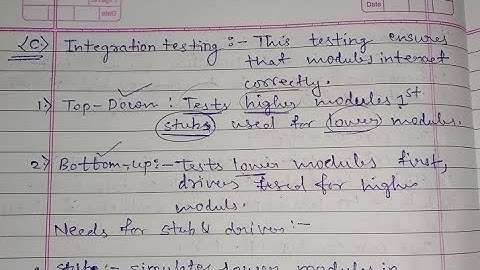 Date
<C> Integration testing :- This testing ensures
that modules interact
correctly.
1) Top-Down : Tests higher modules 1st
stubs used for lower modules.
2) Bottom-up :- Tests lower modules first,
drivers used for higher
moduls.
Needs for stub & driver :-
stubs :- simulates lower modules in